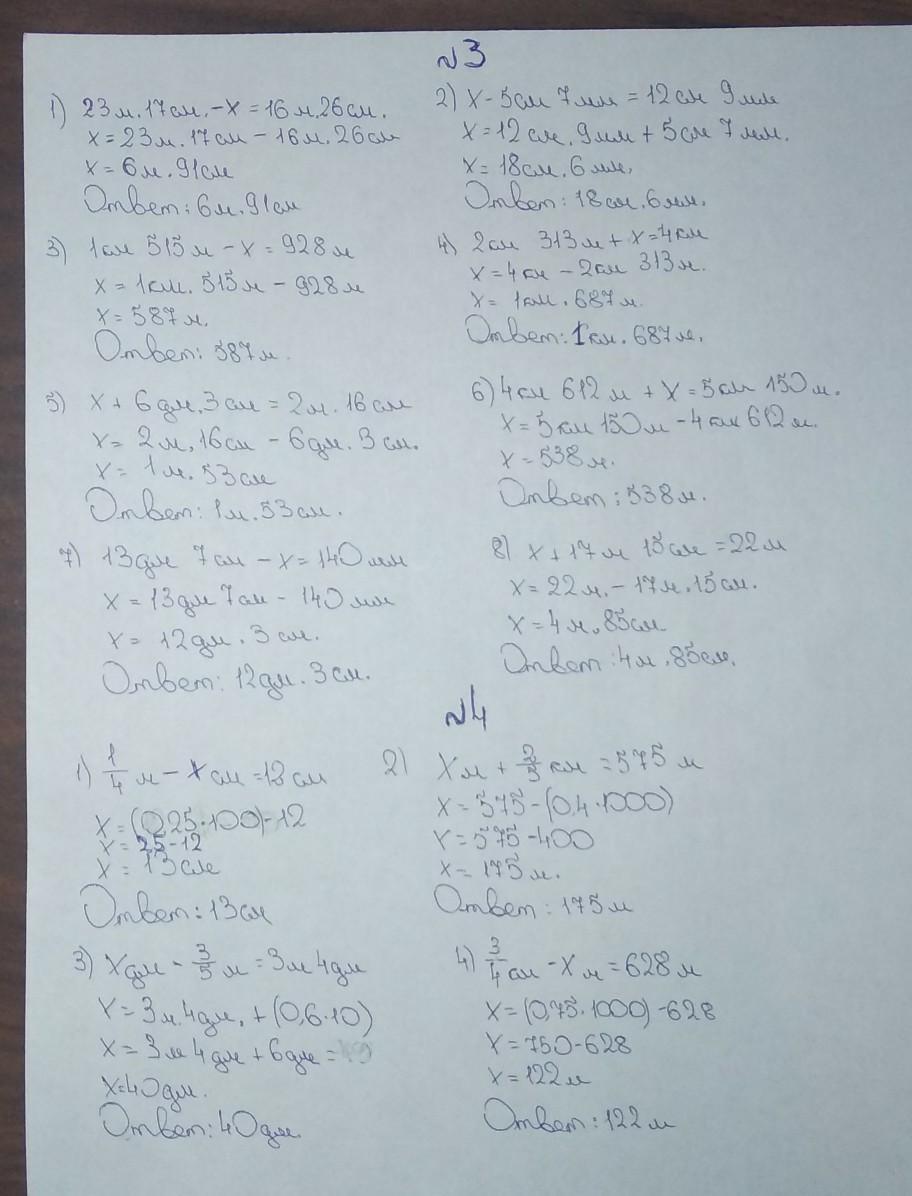 №3
1) 23м.17см.-х=16м.26см.
х=23м.17см-16м.26см
х=6м.91см
Ответ:6м.91см
2) х-5см 7мм=12см 9мм
х=12см.9мм+5см 7мм.
х=18см.6мм.
Ответ:18см.6мм.
3) 1км 515м-х=928м
х=1км.515м-928м
х=587м.
Ответ:587м.
4) 2км 313м+х=4км
х=4км-2км 313м.
х=1км.687м.
Ответ:1км.687м.
5) х+6дм.3см=2м.16см
х=2м.16см-6дм.3см.
х=1м.53см
Ответ:1м.53см.
6) 4км 612м+х=5км 150м.
х=5км 150м-4км 612м.
х=538м.
Ответ:538м.
7) 13дм 7см-х=140мм
х=13дм 7см-140мм
х=12дм.3см.
Ответ:12дм.3см.
8) х+17м 15см=22м
х=22м.-17м.15см.
х=4м.85см
Ответ:4м.85см.
№4
1) 1/4 м-хсм=12см
х=(0,25·100)-12
х=25-12
х=13см
Ответ:13см
2) хм+2/5 км=575м
х=575-(0,4·1000)
х=575-400
х=175м.
Ответ:175м
3) хдм-3/5 м=3м4дм
х=3м.4дм.+(0,6·10)
х=3м4дм+6дм=
х=40дм.
Ответ:40дм.
4) 3/4 км-хм=628м
х=(0,75·1000)-628
х=750-628
х=122м
Ответ:122м